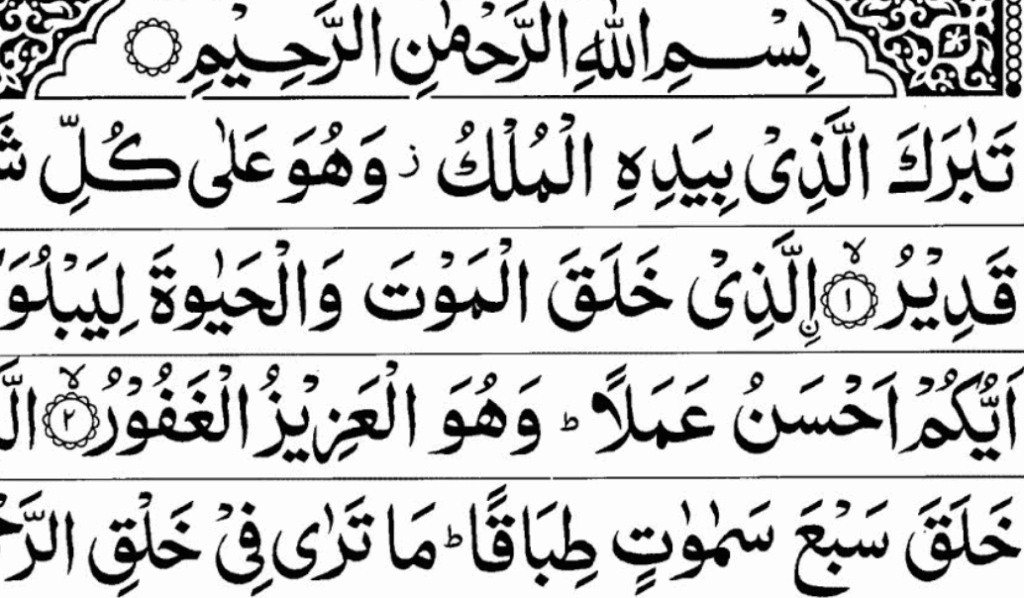 بِسْمِ اللّٰهِ الرَّحْمٰنِ الرَّحِيْمِ ۝
تَبٰرَكَ الَّذِىْ بِيَدِهِ الْمُلْكُ ز وَهُوَ عَلٰى كُلِّ
قَدِيْرُ ۙ﴿۱﴾ اِۨلَّذِىْ خَلَقَ الْمَوْتَ وَالْحَيٰوةَ لِيَبْلُوَ
اَيُّكُمْ اَحْسَنُ عَمَلًا ؕ وَهُوَ الْعَزِيْزُ الْغَفُوْرُ ۙ﴿۲﴾
خَلَقَ سَبْعَ سَمٰوٰتٍ طِبَاقًا ؕ مَا تَرٰى فِىْ خَلْقِ